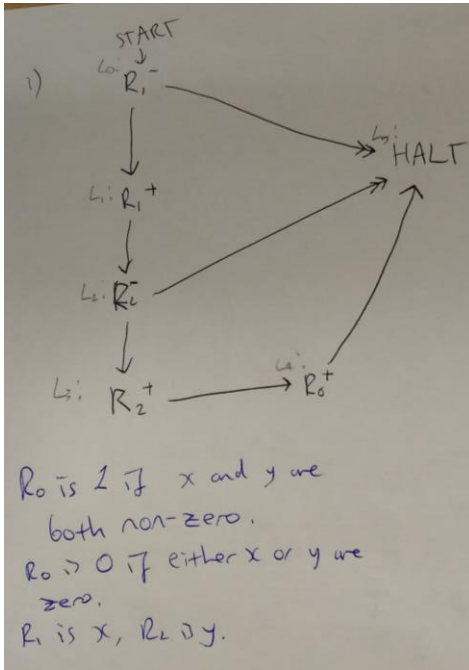 START
i)
L₀: R₁⁻
L₅: HALT
L₁: R₁⁺
L₂: R₂⁻
L₃: R₂⁺
L₄: R₀⁺
R₀ is 1 if x and y are
both non-zero.
R₀ is 0 if either x or y are
zero.
R₁ is x, R₂ is y.